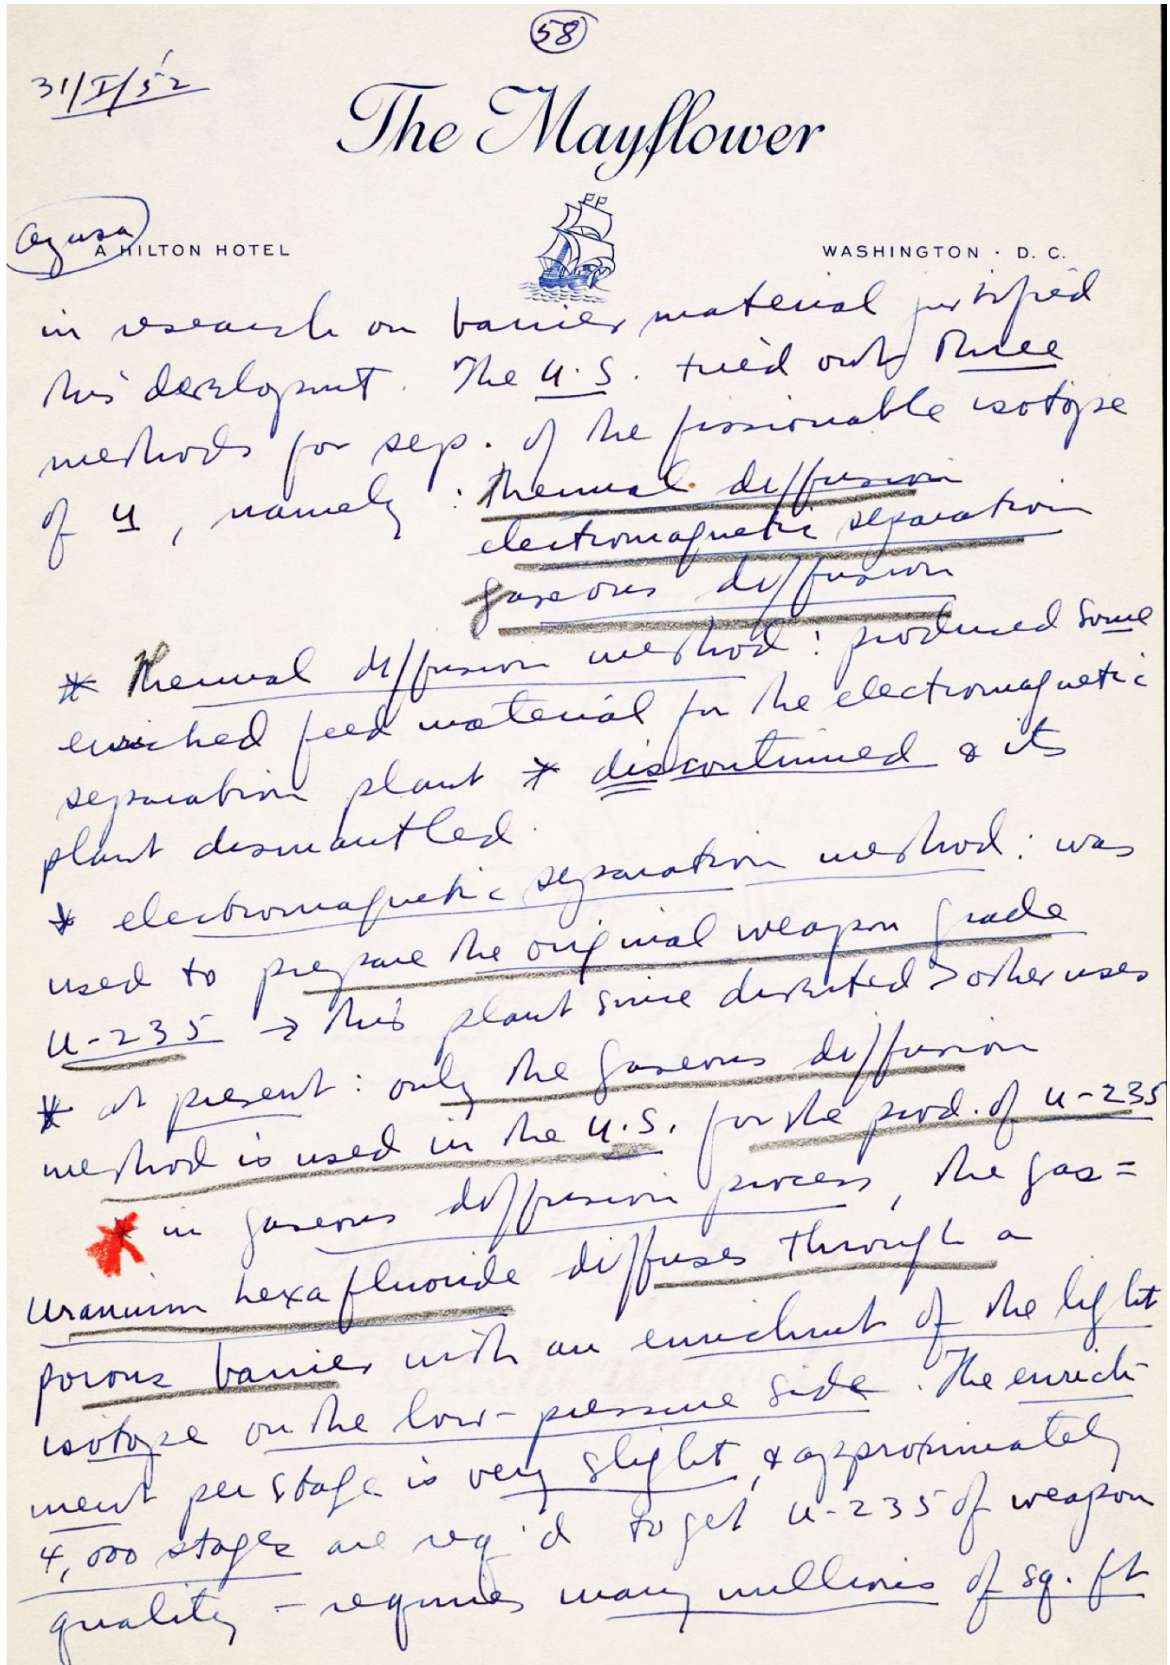 58
31/I/52
The Mayflower
Azusa
A HILTON HOTEL
WASHINGTON · D. C.
in research on barrier material justified
this development. The U.S. tried out three
methods for sep. of the fissionable isotope
of U, namely : thermal diffusion
electromagnetic separation
gaseous diffusion
* Thermal diffusion method : produced some
enriched feed material for the electromagnetic
separation plant * discontinued & its
plant dismantled.
* electromagnetic separation method : was
used to prepare the original weapon grade
U-235 → this plant since diverted > other uses
* at present : only the gaseous diffusion
method is used in the U.S. for the prod. of U-235
* in gaseous diffusion process, the gas =
uranium hexafluoride diffuses through a
porous barrier with an enrichmt of the light
isotope on the low-pressure side. The enrich-
ment per stage is very slight, & approximately
4,000 stages are req'd to get U-235 of weapon
quality - requires many millions of sq. ft